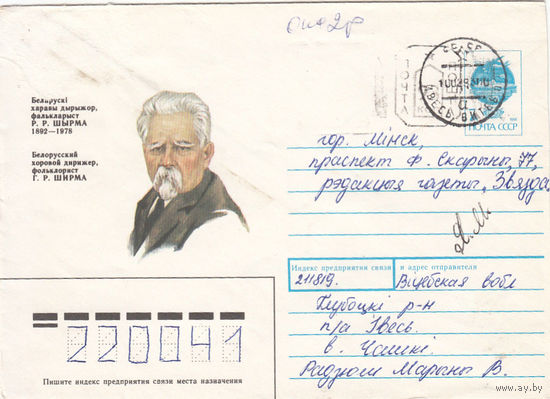 Беларускі
харавы дырыжор,
фалькларыст
Р. Р. ШЫРМА
1892—1978
Белорусский
хоровой дирижер,
фольклорист
Г. Р. ШИРМА
ПОЧТА СССР
гор. Мінск,
праспект Ф. Скарыны, 77,
рэдакцыя газеты „Звязда
Индекс предприятия связи и адрес отправителя
211819. Віцебская вобл
Глубоцкі р-н
п/а Івесь
в.
Марыны В.
220041
Пишите индекс предприятия связи места назначения
www.ay.by